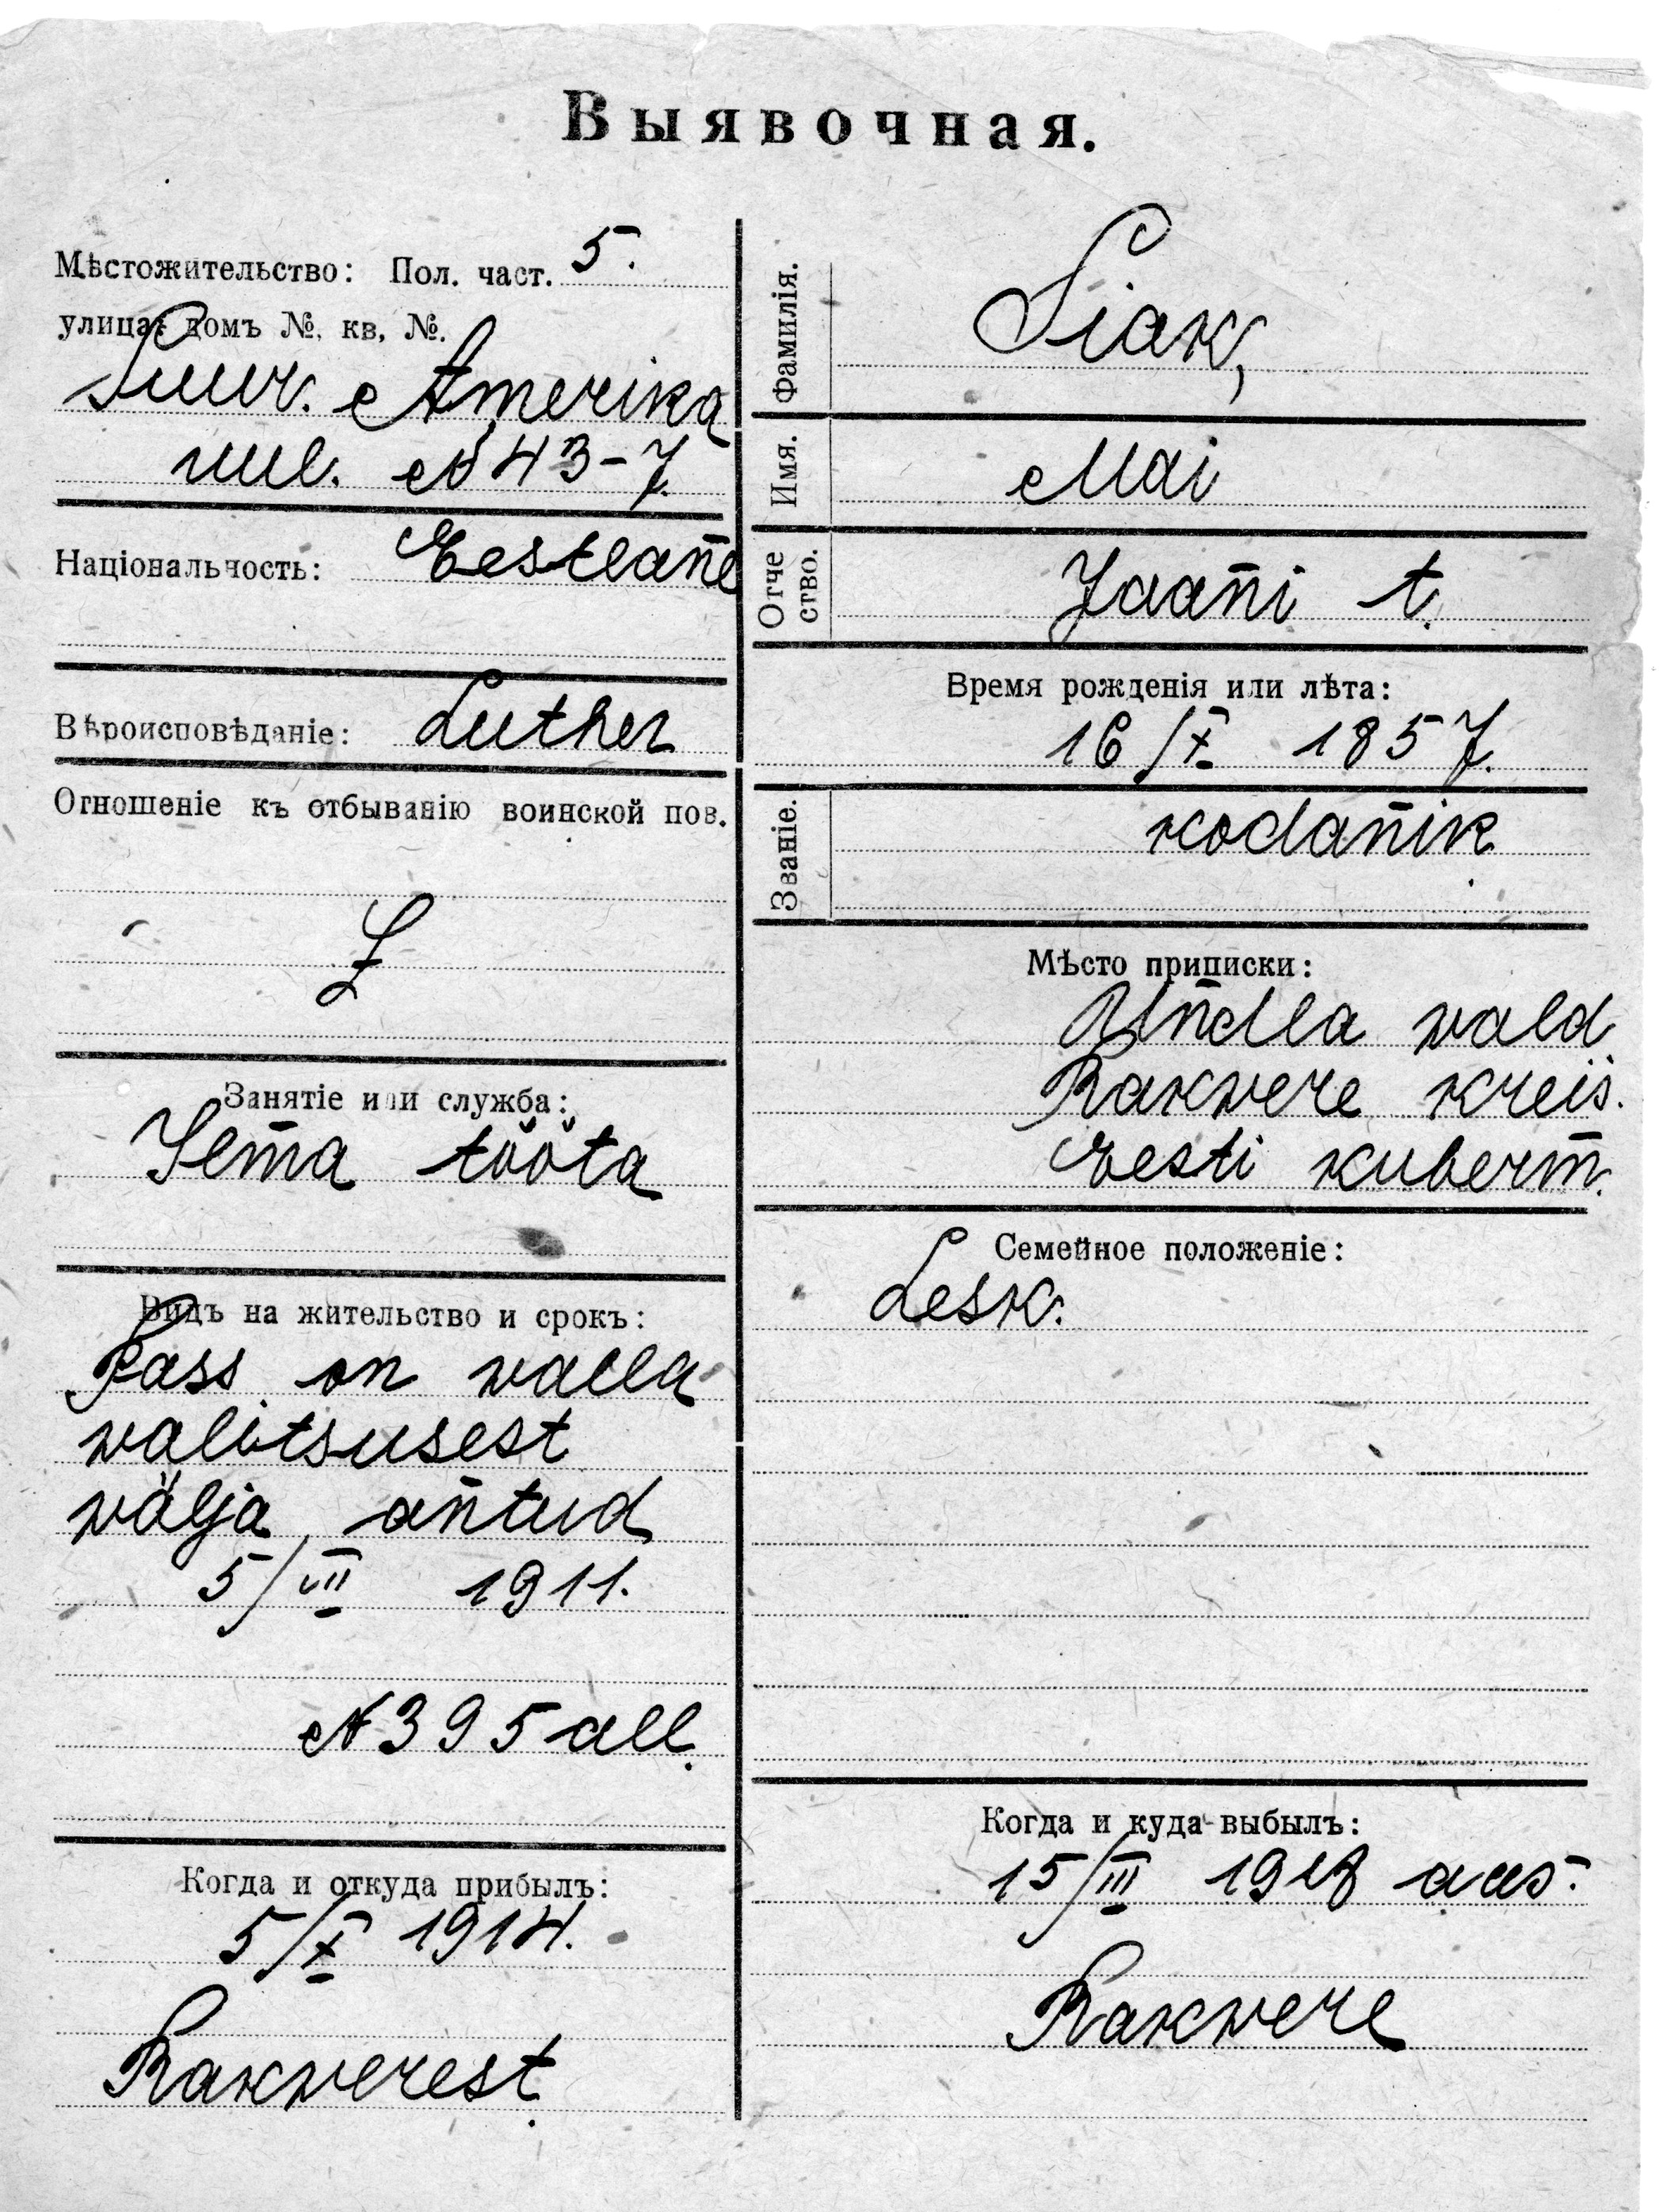 Выявочная.
Мѣстожительство: Пол. част. 5.
улица, домъ №, кв, №.
Suur. Amerika
uul. № 43-7.
Національность: Eestlane
Вѣроисповѣданіе: Luther
Отношеніе къ отбыванію воинской пов.
Занятіе или служба:
Ilma tööta
Видъ на жительство и срокъ:
Pass on walla
walitsusest
wälja antud
5/VII 1911.
№ 395 all.
Когда и откуда прибылъ:
5/X 1914.
Rakwerest
Фамилія. Siak,
Имя. Mai
Отчество. Jaani t.
Время рожденія или лѣта:
16/X 1857.
Званіе. kodanik
Мѣсто приписки:
Undla wald
Rakwere kreis.
Eesti kuberm.
Семейное положеніе:
Lesk.
Когда и куда выбылъ:
15/III 1918 aas.
Rakwere